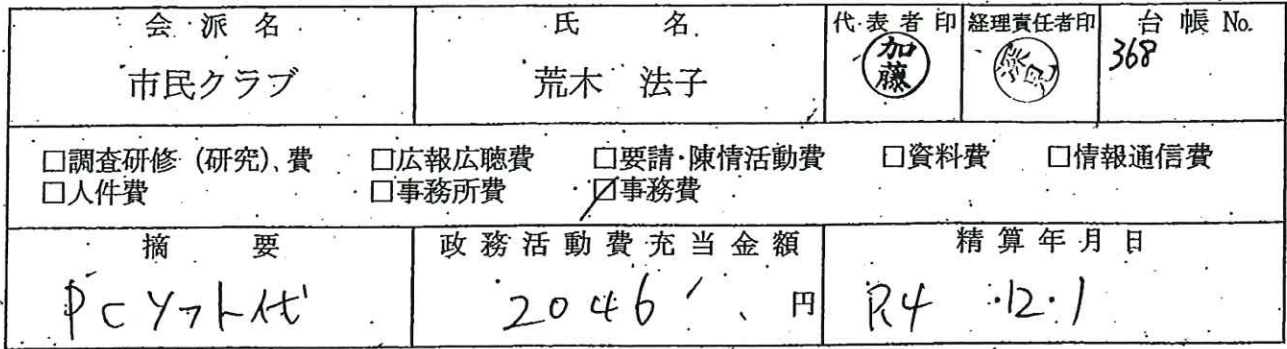 会派名 氏名 代表者印 経理責任者印 台帳No.
市民クラブ 荒木 法子 加藤 深見 368
□調査研修(研究)費 □広報広聴費 □要請・陳情活動費 □資料費 □情報通信費
□人件費 □事務所費 ☑事務費
摘要 政務活動費充当金額 精算年月日
PCソフト代 2046 円 R4.12.1